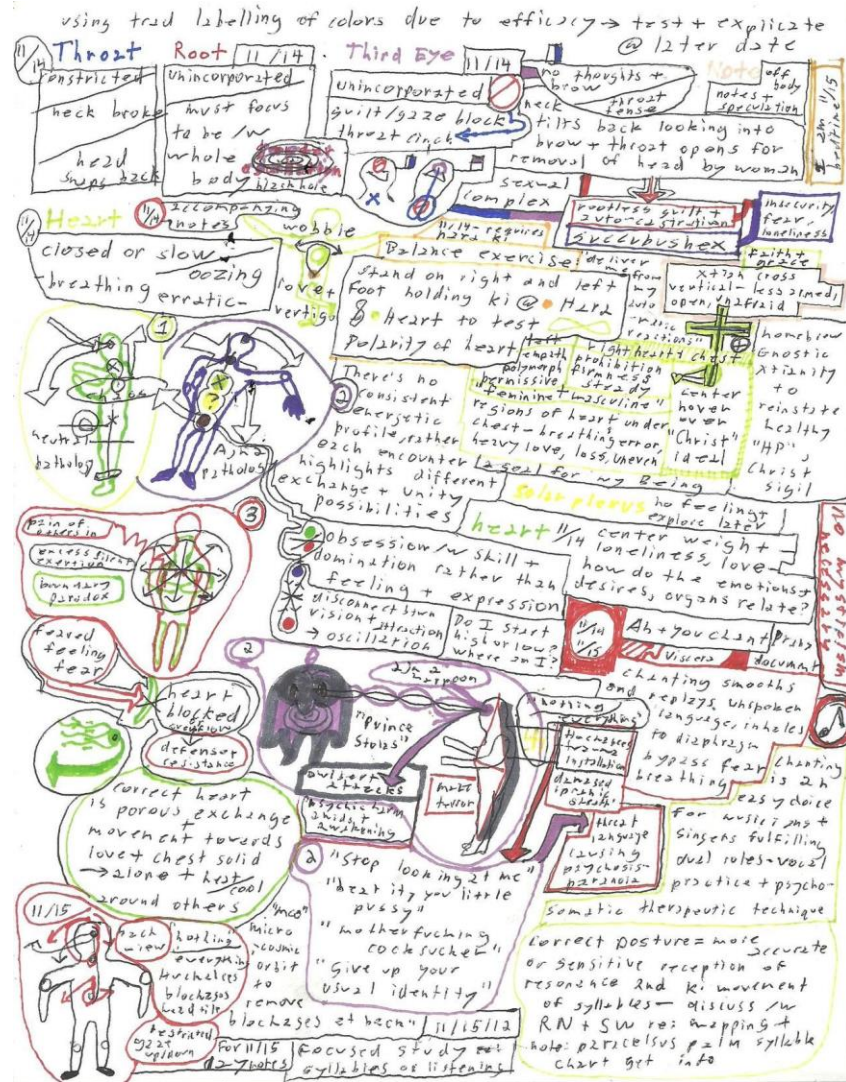 using trad labelling of colors due to efficacy → test + explicate
@ later date
11/14
Throat
constricted
neck broke
head
snaps back
Root 11/14
unincorporated
must focus
to be /w
whole
body
black hole
Third Eye 11/14
unincorporated
guilt/gaze block
throat cinch
no thoughts +
brow
throat
tense
neck
tilts back looking into
brow + throat opens for
removal of head by woman
Note
off
body
notes +
speculation
2m 11/15
bedtime
sexual
complex
rootless guilt +
auto-castration
succubus hex
insecurity
fear,
loneliness
11/14
Heart
11/14
accompanying
notes
closed or slow
oozing
breathing
erratic-
wobble
love +
vertigo
11/14 - requires
hara ki
Balance exercise:
Stand on right and left
Foot holding ki @ Hara
& Heart to test
Polarity of heart
deliver
me from
my
auto
reactions"
faith +
grace
xtian cross
vertical - less armed,
open, unafraid
left
empath
polymorph
permissive
right heart + chest
prohibition
firmness
steady
"feminine + masculine"
regions of heart under
chest - breathing error
heavy love, loss, uneven
center
hover
over
"Christ"
ideal
homebrew
Gnostic
Xtianity
to
reinstate
healthy
"HP",
Christ
sigil
[a seal for my Being
1
chaos
neutral
pathology
2
Ajna
pathology
There's no
consistent
energetic
profile, rather
each encounter
highlights different
exchange + unity
possibilities
solar plexus
no feeling +
explore later
3
pain of
others in
excess silent
exertion
boundary
paradox
obsession /w skill +
domination rather than
feeling + expression
disconnect btwn
vision + attraction
→ oscillation
heart 11/14
center weight +
loneliness, love -
how do the emotions +
desires, organs relate?
Do I start
high or low?
where am I?
no mysticism
necessary
11/14
11/15
Ah + you chant
Viscera
document
chanting smooths
and replays, unspoken
language, inhales
to diaphragm
bypass fear
breathing
chanting
is an
easy choice
for musicians +
singers fulfilling
dual roles - vocal
practice + psycho-
somatic therapeutic technique
feared
feeling
fear
heart
blocked
defenser
resistance
2
"Prince
Stolas"
psychic harm
+
awakening
matt
turror
"nothing
everything"
4 chances
trauma
installation
damaged
threat
language
causing
psychosis -
paranoia
correct heart
is porous exchange
+
movement towards
love + chest solid
→ alone + heat/cool
around others
2
"Stop looking at me"
"beat it, you little
pussy"
"motherfucking
cocksucker"
"Give up your
usual identity"
11/15
back
view
"nothing"
everything
4 chances
blockages
restricted
gaze
up/down
"mco"
micro
cosmic
orbit
to
remove
blockages at back"
11/15/12
For 11/15
focused study
syllables or listening
correct posture = more
accurate
or sensitive reception of
resonance and ki movement
of syllables - discuss /w
RN + SW re: mapping +
note: paracelsus palm syllable
chart get info